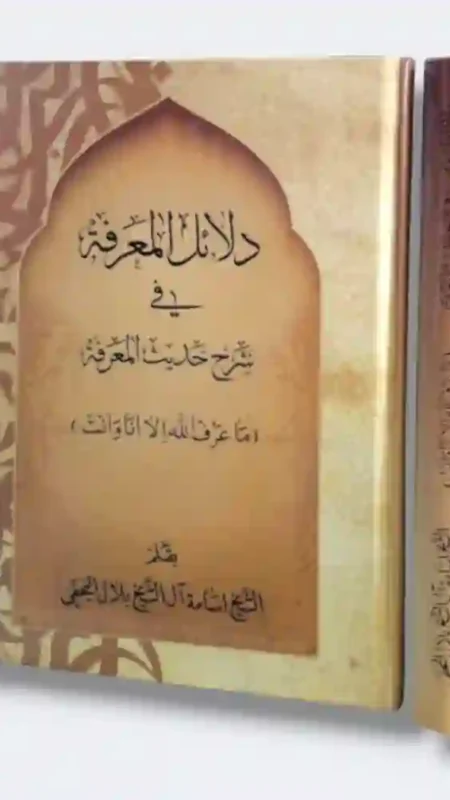 دلائل المعرفة
في
شرح حديث المعرفة
(ما عرف الله إلا أنا وأنت)
بقلم
الشيخ أسامة آل الشيخ بلال النجفي